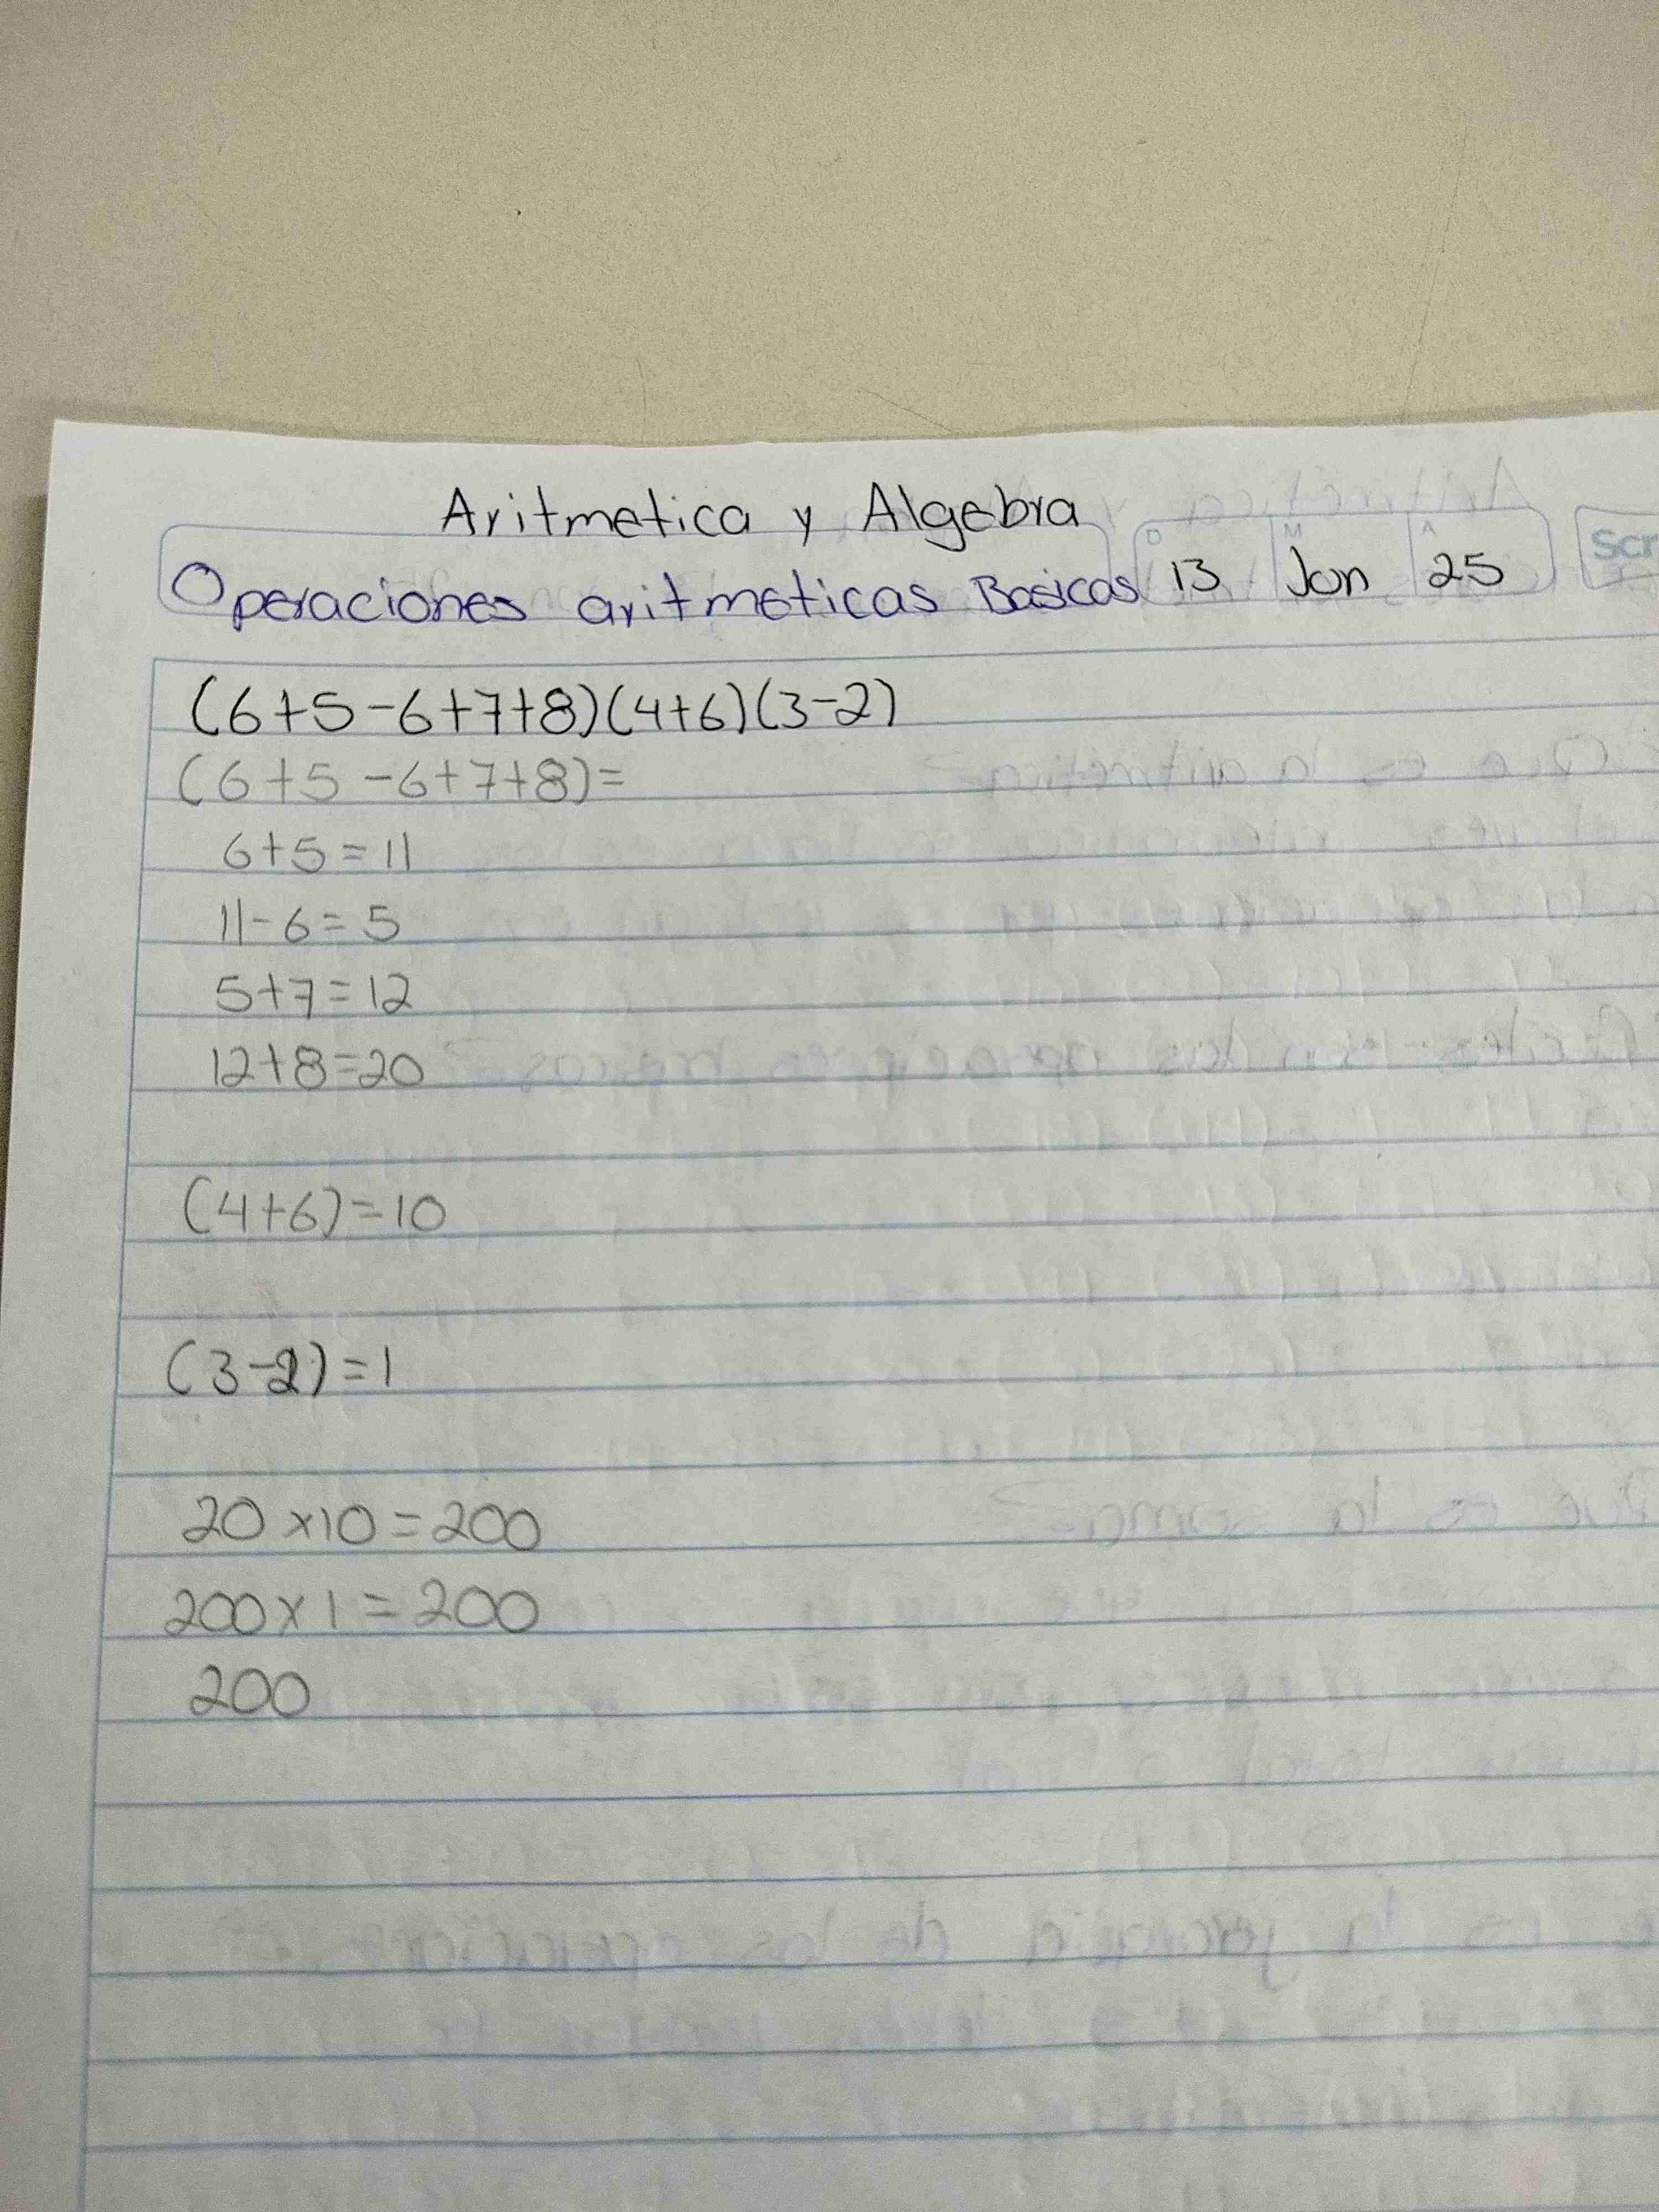 Aritmetica y Algebra
Operaciones aritmeticas Basicas D 13 M Jan A 25 Scr
(6+5-6+7+8)(4+6)(3-2)
(6+5-6+7+8)=
6+5=11
11-6=5
5+7=12
12+8=20
(4+6)=10
(3-2)=1
20x10=200
200x1=200
200